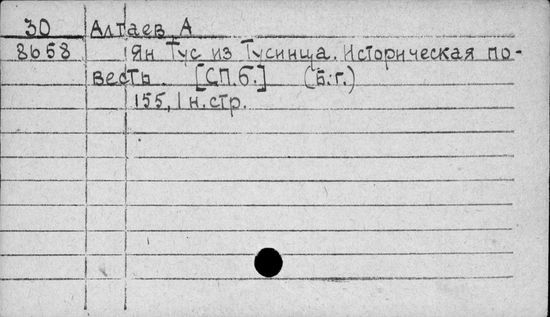 30 Алтаев А
8658 Ян Тус из Тусинца. Историческая по-
весть. [СП.б.] (б.г.)
155, 1 н.стр.